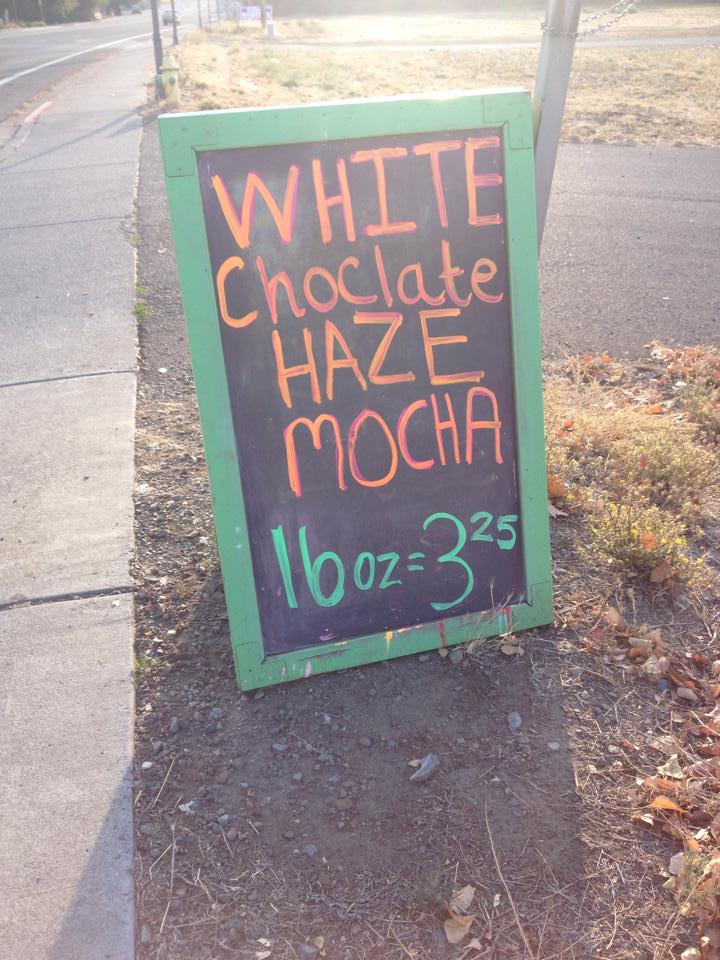 WHITE
Choclate
HAZE
MOCHA
16 oz = 3 25